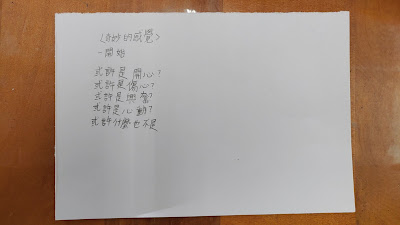 〈奇妙的感覺〉
一開始
或許是開心?
或許是傷心?
或許是興奮?
或許是心動?
或許什麼也不是